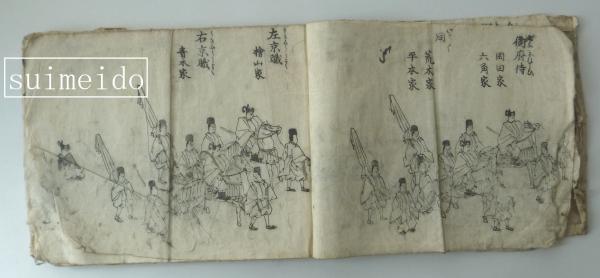 衛府侍
岡田家
六角家
同
荒木家
平本家
左京職
檜山家
右京職
青木家
suimeido